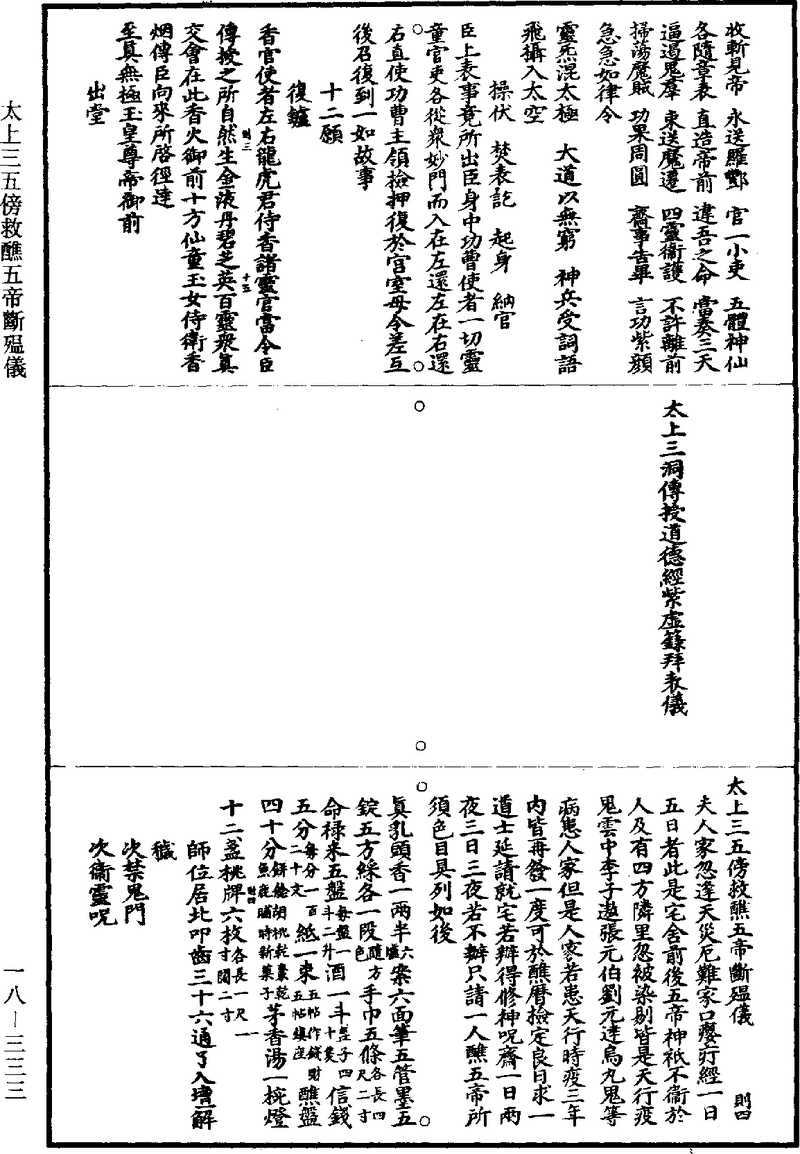 收斬見帝　永送羅酆　官一小吏　五體神仙
各隨章表　直造帝前　違吾之命　當奏三天
逼遏鬼羣　東送魔邊　四靈衞護　不許離前
掃蕩魔賊　功果周圓　齋事告畢　言功紫顏
急急如律令
靈炁混太極　大道以無窮　神兵受詞語
飛攝入太空
操伏　焚表訖　起身　納官
臣上表事竟所出臣身中功曹使者一切靈
童官吏各從衆妙門而入在左還左在右還
右直使功曹主領檢押復於宮室毋令差互
後召復到一如故事
十二願
復鑪
香官使者左右龍虎君侍香諸靈官當令臣
傳授之所自然生金液丹碧芝英百靈衆眞
交會在此香火御前十方仙童玉女侍衞香
烟傳臣向來所啓徑達
至眞無極玉皇尊帝御前
出堂
太上三洞傳授道德經紫虛籙拜表儀
太上三五傍救醮五帝斷瘟儀　則四
夫人家忽逢天災厄難家口瘿疔經一日
五日者此是宅舍前後五帝神祇不衞於
人及有四方隣里忽被染剔皆是天行疫
鬼雲中李子遨張元伯劉元達烏丸鬼等
病患人家但是人家若患天行時疫三年
內皆再發一度可於醮曆檢定良日求一
道士延請就宅若辦得修神呪齋一日兩
夜三日三夜若不辦只請一人醮五帝所
須色目具列如後
眞乳頭香一兩半六爐案六面筆五管墨五
錠五方綵各一段隨方色手巾五條各長四尺二寸
命祿米五盤每盤一斗二升酒一斗盞子四十隻信錢
五分每分一百二十文紙一束五帖作錢財五帖鎮座醮盤
四十分餅餤胡桃乾棗乾魚鹿脯時新菓子茅香湯一椀燈
十二盞桃牌六枚各長一尺一寸闊二寸
師位居北叩齒三十六通了入壇解
穢
次禁鬼門
次衞靈呪
太上三五傍救醮五帝斷瘟儀
一八－三三三